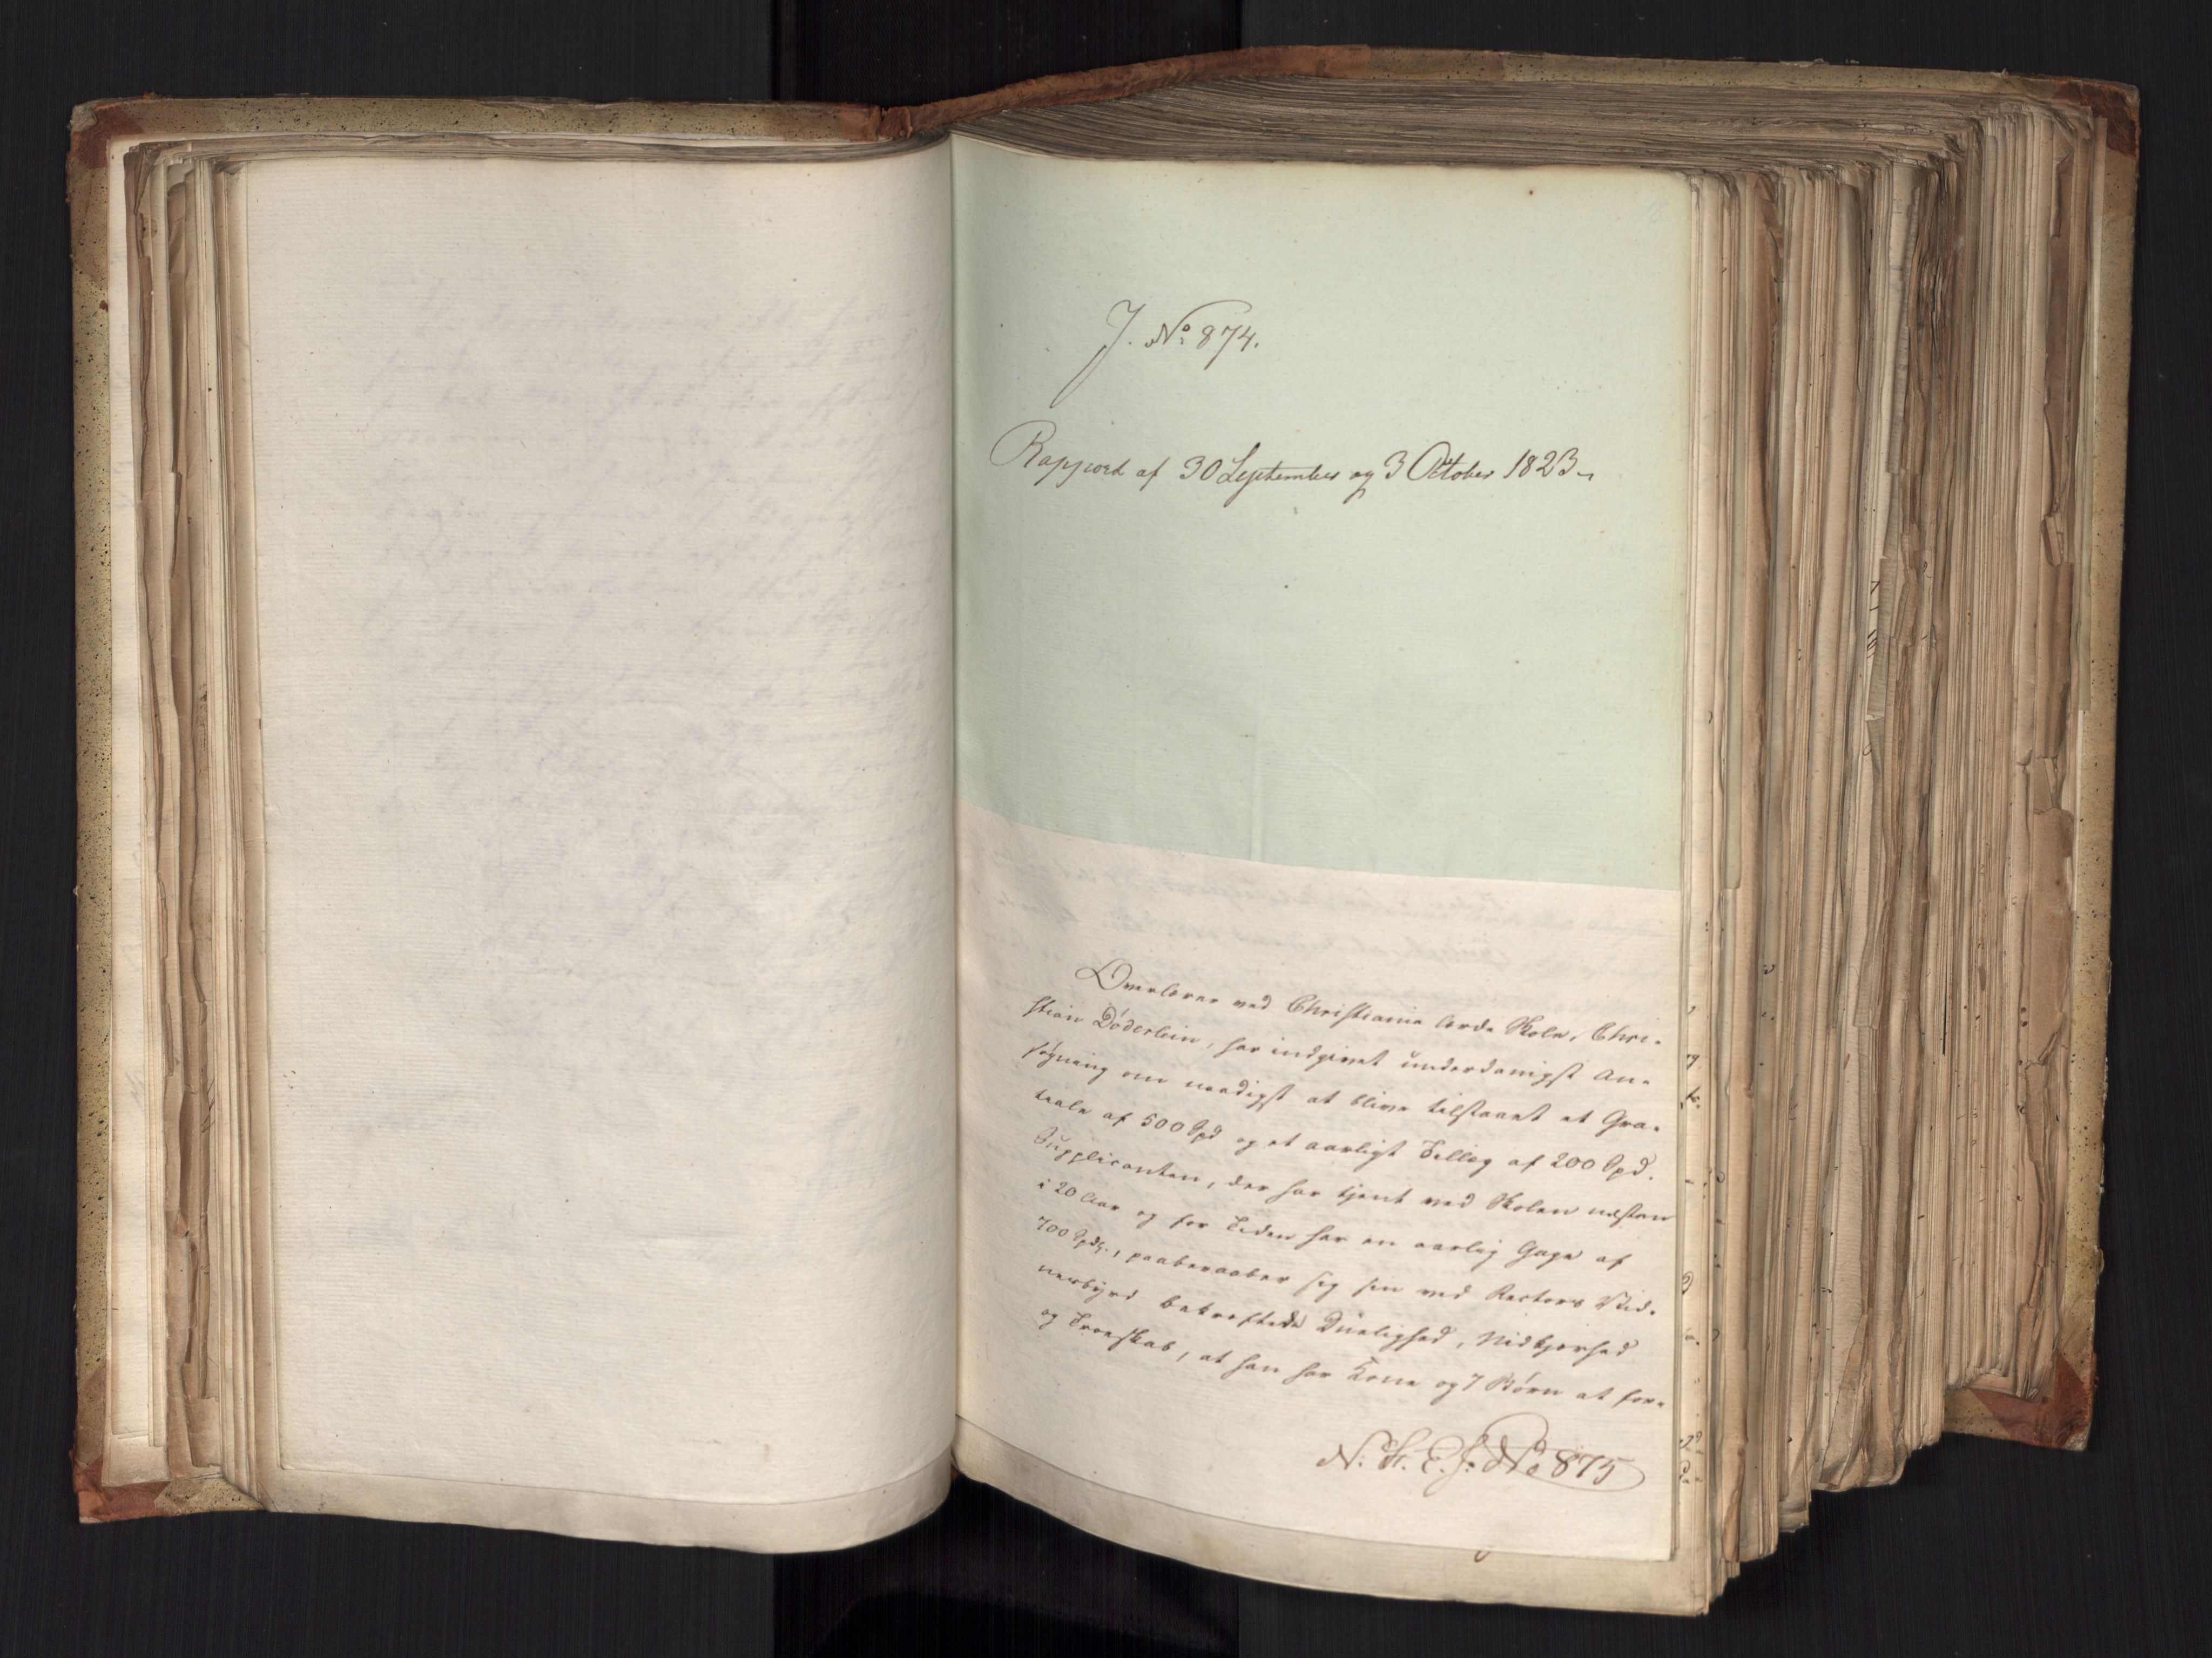 J. No 874.
Rapport af 30 September og 3 October 1823
Overlærer ved Christiania lærde Skole, Chri-
stian Döderlein, har indgivet underdanigst An-
søgning om naadigst at blive tilstaaet et Gra-
tiale af 500 Spd og et aarligt Tillæg af 200 Spd.
Supplicanten, der har tjent ved Skolen næsten
i 20 Aar og for Tiden har en aarlig Gage af
700 Spd., paaberaaber sig sin ved Rectors Vid-
nesbyrd bekræftede Duelighed, Nidkjærhed
og Troeskab, at han har Kone og 7 Børn at for-
N. St. E. J. No 875